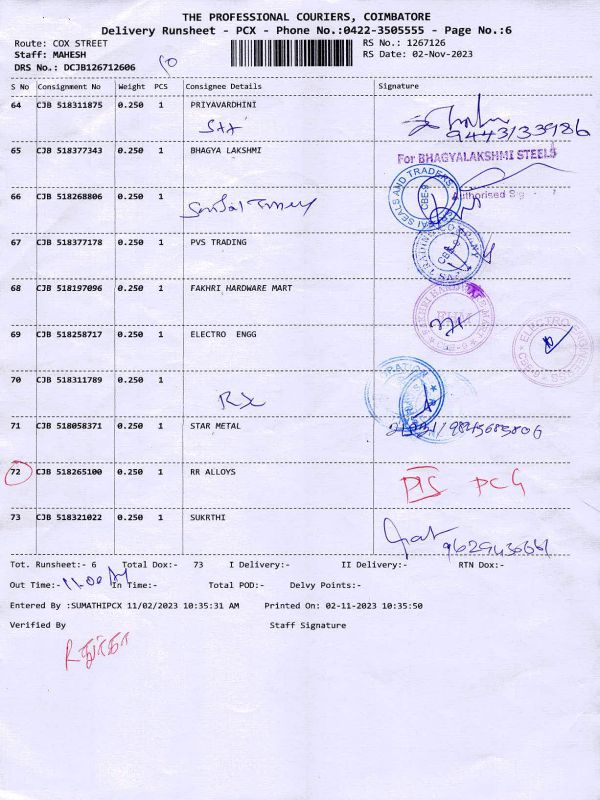 THE PROFESSIONAL COURIERS, COIMBATORE
Delivery Runsheet - PCX - Phone No.:0422-3505555 - Page No.:6
Route: COX STREET RS No.: 1267126
Staff: MAHESH RS Date: 02-Nov-2023
DRS No.: DCJB126712606
S No Consignment No Weight PCS Consignee Details Signature
64 CJB 518311875 0.250 1 PRIYAVARDHINI
9443133986
65 CJB 518377343 0.250 1 BHAGYA LAKSHMI For BHAGYALAKSHMI STEELS
66 CJB 518268806 0.250 1 Authorised
SEALS AND TRADERS CBE-9
67 CJB 518377178 0.250 1 PVS TRADING
68 CJB 518197096 0.250 1 FAKHRI HARDWARE MART
69 CJB 518258717 0.250 1 ELECTRO ENGG
70 CJB 518311789 0.250 1
RX
71 CJB 518058371 0.250 1 STAR METAL
72 CJB 518265100 0.250 1 RR ALLOYS
73 CJB 518321022 0.250 1 SUKRTHI
Tot. Runsheet:- 6 Total Dox:- 73 I Delivery:- II Delivery:- RTN Dox:-
Out Time:- 11.00 In Time:- Total POD:- Delvy Points:-
Entered By :SUMATHIPCX 11/02/2023 10:35:31 AM Printed On: 02-11-2023 10:35:50
Verified By Staff Signature